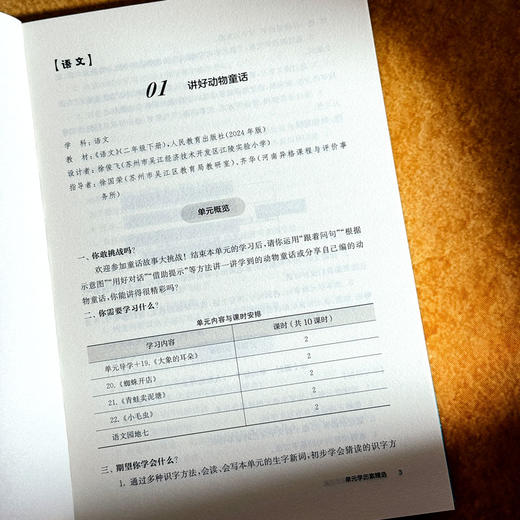 【语文】
01 讲好动物童话
学 科：语文
教 材：《语文》(二年级下册)，人民教育出版社(2024年版)
设计者：徐俊飞(苏州市吴江经济技术开发区江陵实验小学)
指导者：徐国荣(苏州市吴江区教育局教研室)、齐华(河南异格课程与评价事
务所)
单元概览
一、你敢挑战吗？
欢迎参加童话故事大挑战！结束本单元的学习后，请你运用“跟着问句”“根据
示意图”“用好对话”“借助提示”等方法讲一讲学到的动物童话或分享自己编的动
物童话，你能讲得很精彩吗？
二、你需要学习什么？
单元内容与课时安排
学习内容 课时（共10课时）
单元导学+19.《大象的耳朵》 2
20.《蜘蛛开店》 2
21.《青蛙卖泥塘》 2
22.《小毛虫》 2
语文园地七 2
三、期望你学会什么？
1. 通过多种识字方法，会读、会写本单元的生字新词，初步学会猜读的识字方
单元学历案精选 3